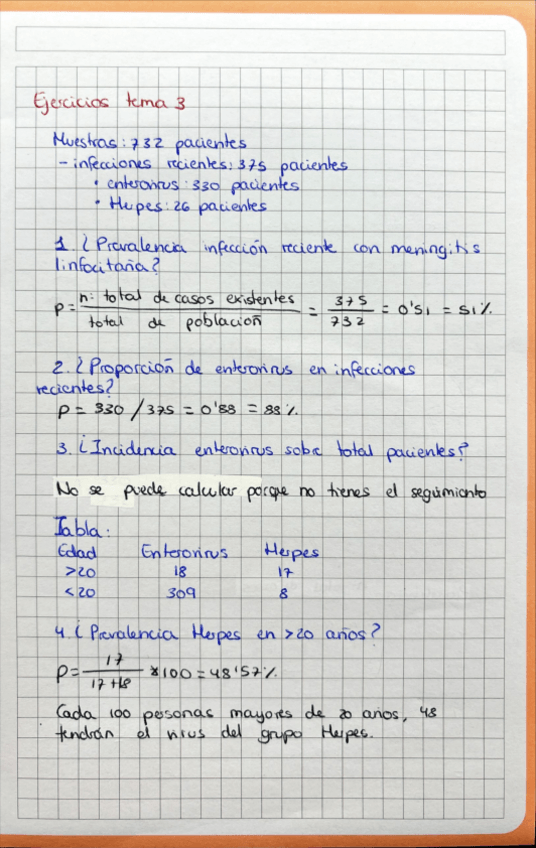 Ejercicios tema 3
Muestras: 732 pacientes
- infecciones recientes: 375 pacientes
• enterovirus: 330 pacientes
• Herpes: 26 pacientes
1. ¿Prevalencia infección reciente con meningitis
linfocitaria?
p = n: total de casos existentes / total de población = 375 / 732 = 0'51 = 51%
2. ¿Proporción de enterovirus en infecciones
recientes?
p = 330 / 375 = 0'88 = 88%
3. ¿Incidencia enterovirus sobre total pacientes?
No se puede calcular porque no tienes el seguimiento
Tabla:
Edad Enterovirus Herpes
>20 18 17
<20 309 8
4. ¿Prevalencia Herpes en >20 años?
p = 17 / 17+18 * 100 = 48'57%
Cada 100 personas mayores de 20 años, 48
tendrán el virus del grupo Herpes.